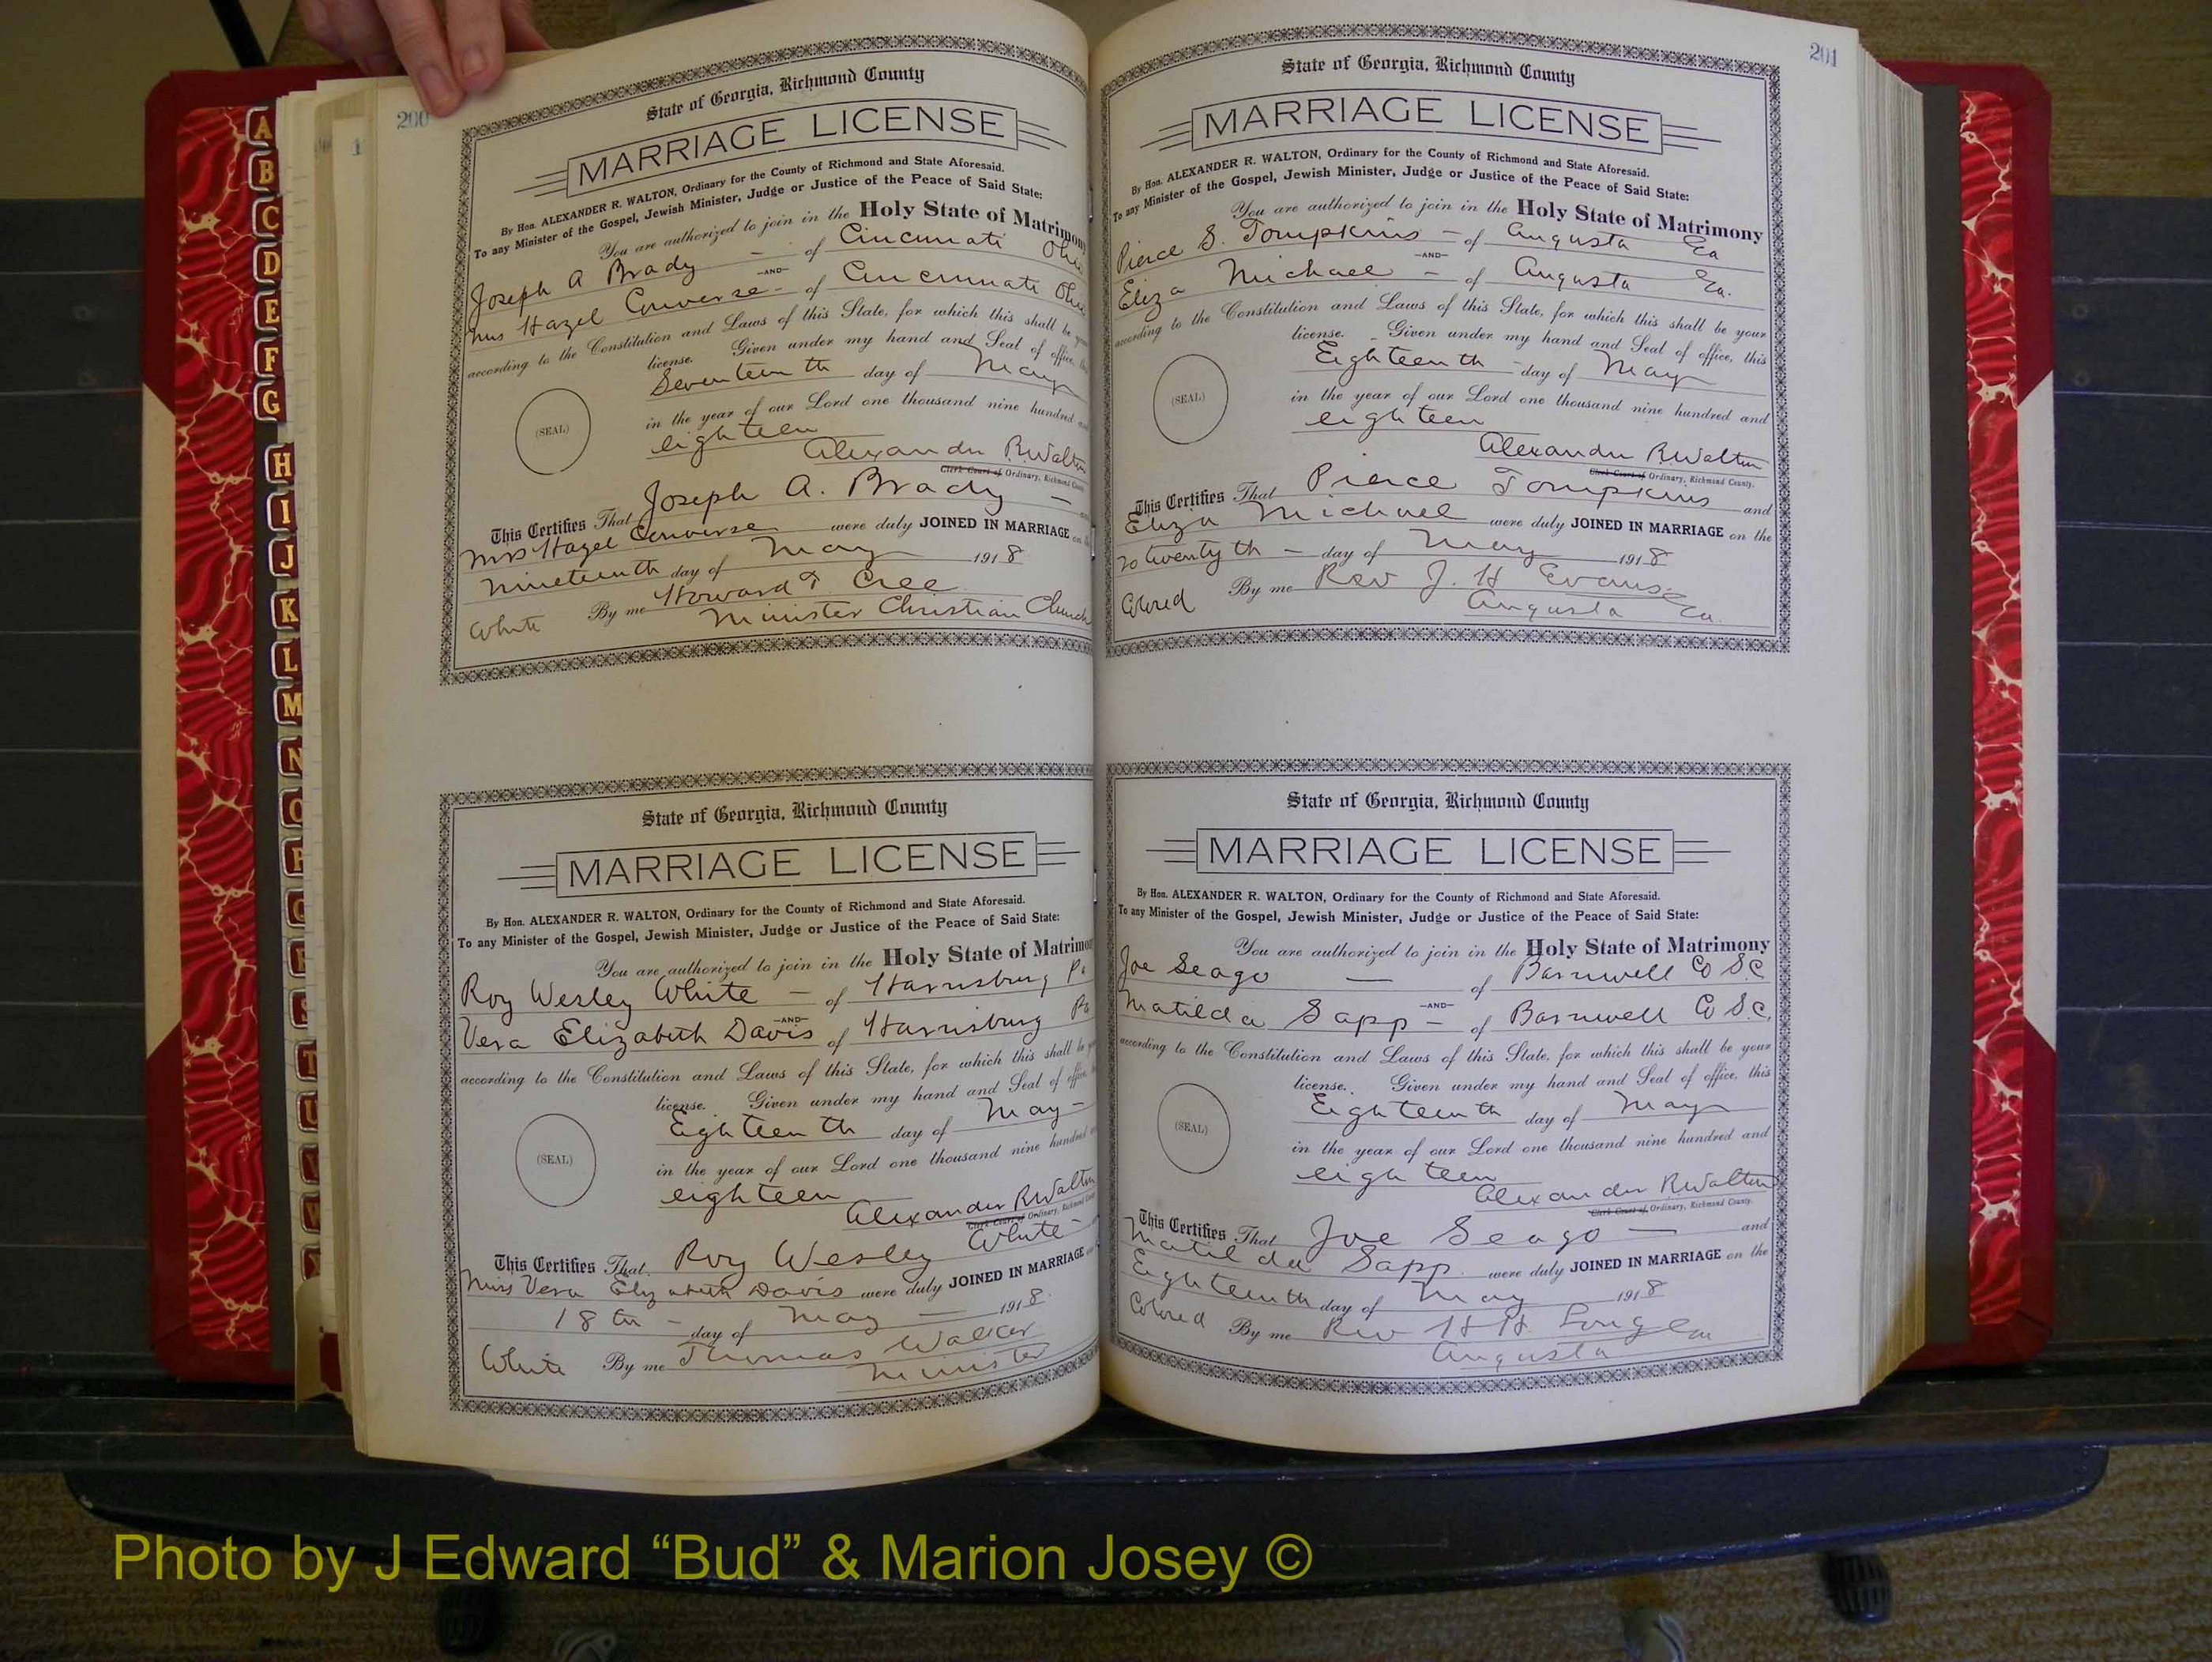 200
State of Georgia, Richmond County
MARRIAGE LICENSE
By Hon. ALEXANDER R. WALTON, Ordinary for the County of Richmond and State Aforesaid.
To any Minister of the Gospel, Jewish Minister, Judge or Justice of the Peace of Said State:
You are authorized to join in the Holy State of Matrimony
Joseph A Brady - of Cincinnati Ohio
-AND-
Mrs Hazel Converse - of Cincinnati Ohio
according to the Constitution and Laws of this State, for which this shall be your
license. Given under my hand and Seal of office, this
Seventeenth day of May
(SEAL)
in the year of our Lord one thousand nine hundred and
eighteen
Alexander R Walton
Clerk Court of Ordinary, Richmond County
This Certifies That Joseph A. Brady - and
Mrs Hazel Converse were duly JOINED IN MARRIAGE on the
Nineteenth day of May 1918
White By me Howard T. Cree
Minister Christian Church
State of Georgia, Richmond County
MARRIAGE LICENSE
By Hon. ALEXANDER R. WALTON, Ordinary for the County of Richmond and State Aforesaid.
To any Minister of the Gospel, Jewish Minister, Judge or Justice of the Peace of Said State:
You are authorized to join in the Holy State of Matrimony
Roy Wesley White - of Harrisburg Pa
-AND-
Vera Elizabeth Davis of Harrisburg Pa
according to the Constitution and Laws of this State, for which this shall be your
license. Given under my hand and Seal of office, this
Eighteenth day of May -
(SEAL)
in the year of our Lord one thousand nine hundred and
eighteen
Alexander R Walton
Clerk Court of Ordinary, Richmond County
This Certifies That Roy Wesley White -
Miss Vera Elizabeth Davis were duly JOINED IN MARRIAGE on
18th - day of May - 1918.
White By me Thomas Walker
Minister
201
State of Georgia, Richmond County
MARRIAGE LICENSE
By Hon. ALEXANDER R. WALTON, Ordinary for the County of Richmond and State Aforesaid.
To any Minister of the Gospel, Jewish Minister, Judge or Justice of the Peace of Said State:
You are authorized to join in the Holy State of Matrimony
Pierce S. Tompkins - of Augusta Ga
-AND-
Eliza Michael - of Augusta Ga.
according to the Constitution and Laws of this State, for which this shall be your
license. Given under my hand and Seal of office, this
Eighteenth - day of May
(SEAL)
in the year of our Lord one thousand nine hundred and
eighteen
Alexander R Walton
Clerk Court of Ordinary, Richmond County.
This Certifies That Pierce Tompkins and
Eliza Michael were duly JOINED IN MARRIAGE on the
20 twentyth - day of May 1918
Colored By me Rev J. H Evans
Augusta Ga.
State of Georgia, Richmond County
MARRIAGE LICENSE
By Hon. ALEXANDER R. WALTON, Ordinary for the County of Richmond and State Aforesaid.
To any Minister of the Gospel, Jewish Minister, Judge or Justice of the Peace of Said State:
You are authorized to join in the Holy State of Matrimony
Joe Seago - of Barnwell Co S.C
-AND-
Matilda Sapp - of Barnwell Co S.C.
according to the Constitution and Laws of this State, for which this shall be your
license. Given under my hand and Seal of office, this
Eighteenth day of May
(SEAL)
in the year of our Lord one thousand nine hundred and
eighteen
Alexander R Walton
Clerk Court of Ordinary, Richmond County.
This Certifies That Joe Seago - and
Matilda Sapp were duly JOINED IN MARRIAGE on the
Eighteenth day of May 1918
Colored By me Rev H H
Augusta
A
B
C
D
E
F
G
H
I
J
K
L
M
N
O
P
Q
R
S
T
U
V
W
Photo by J Edward “Bud” & Marion Josey ©